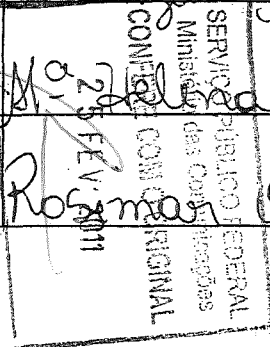 SERVIÇO PÚBLICO FEDERAL
Ministério das Comunicações
CONFERE COM O ORIGINAL
25 FEV. 2011
Rosimar